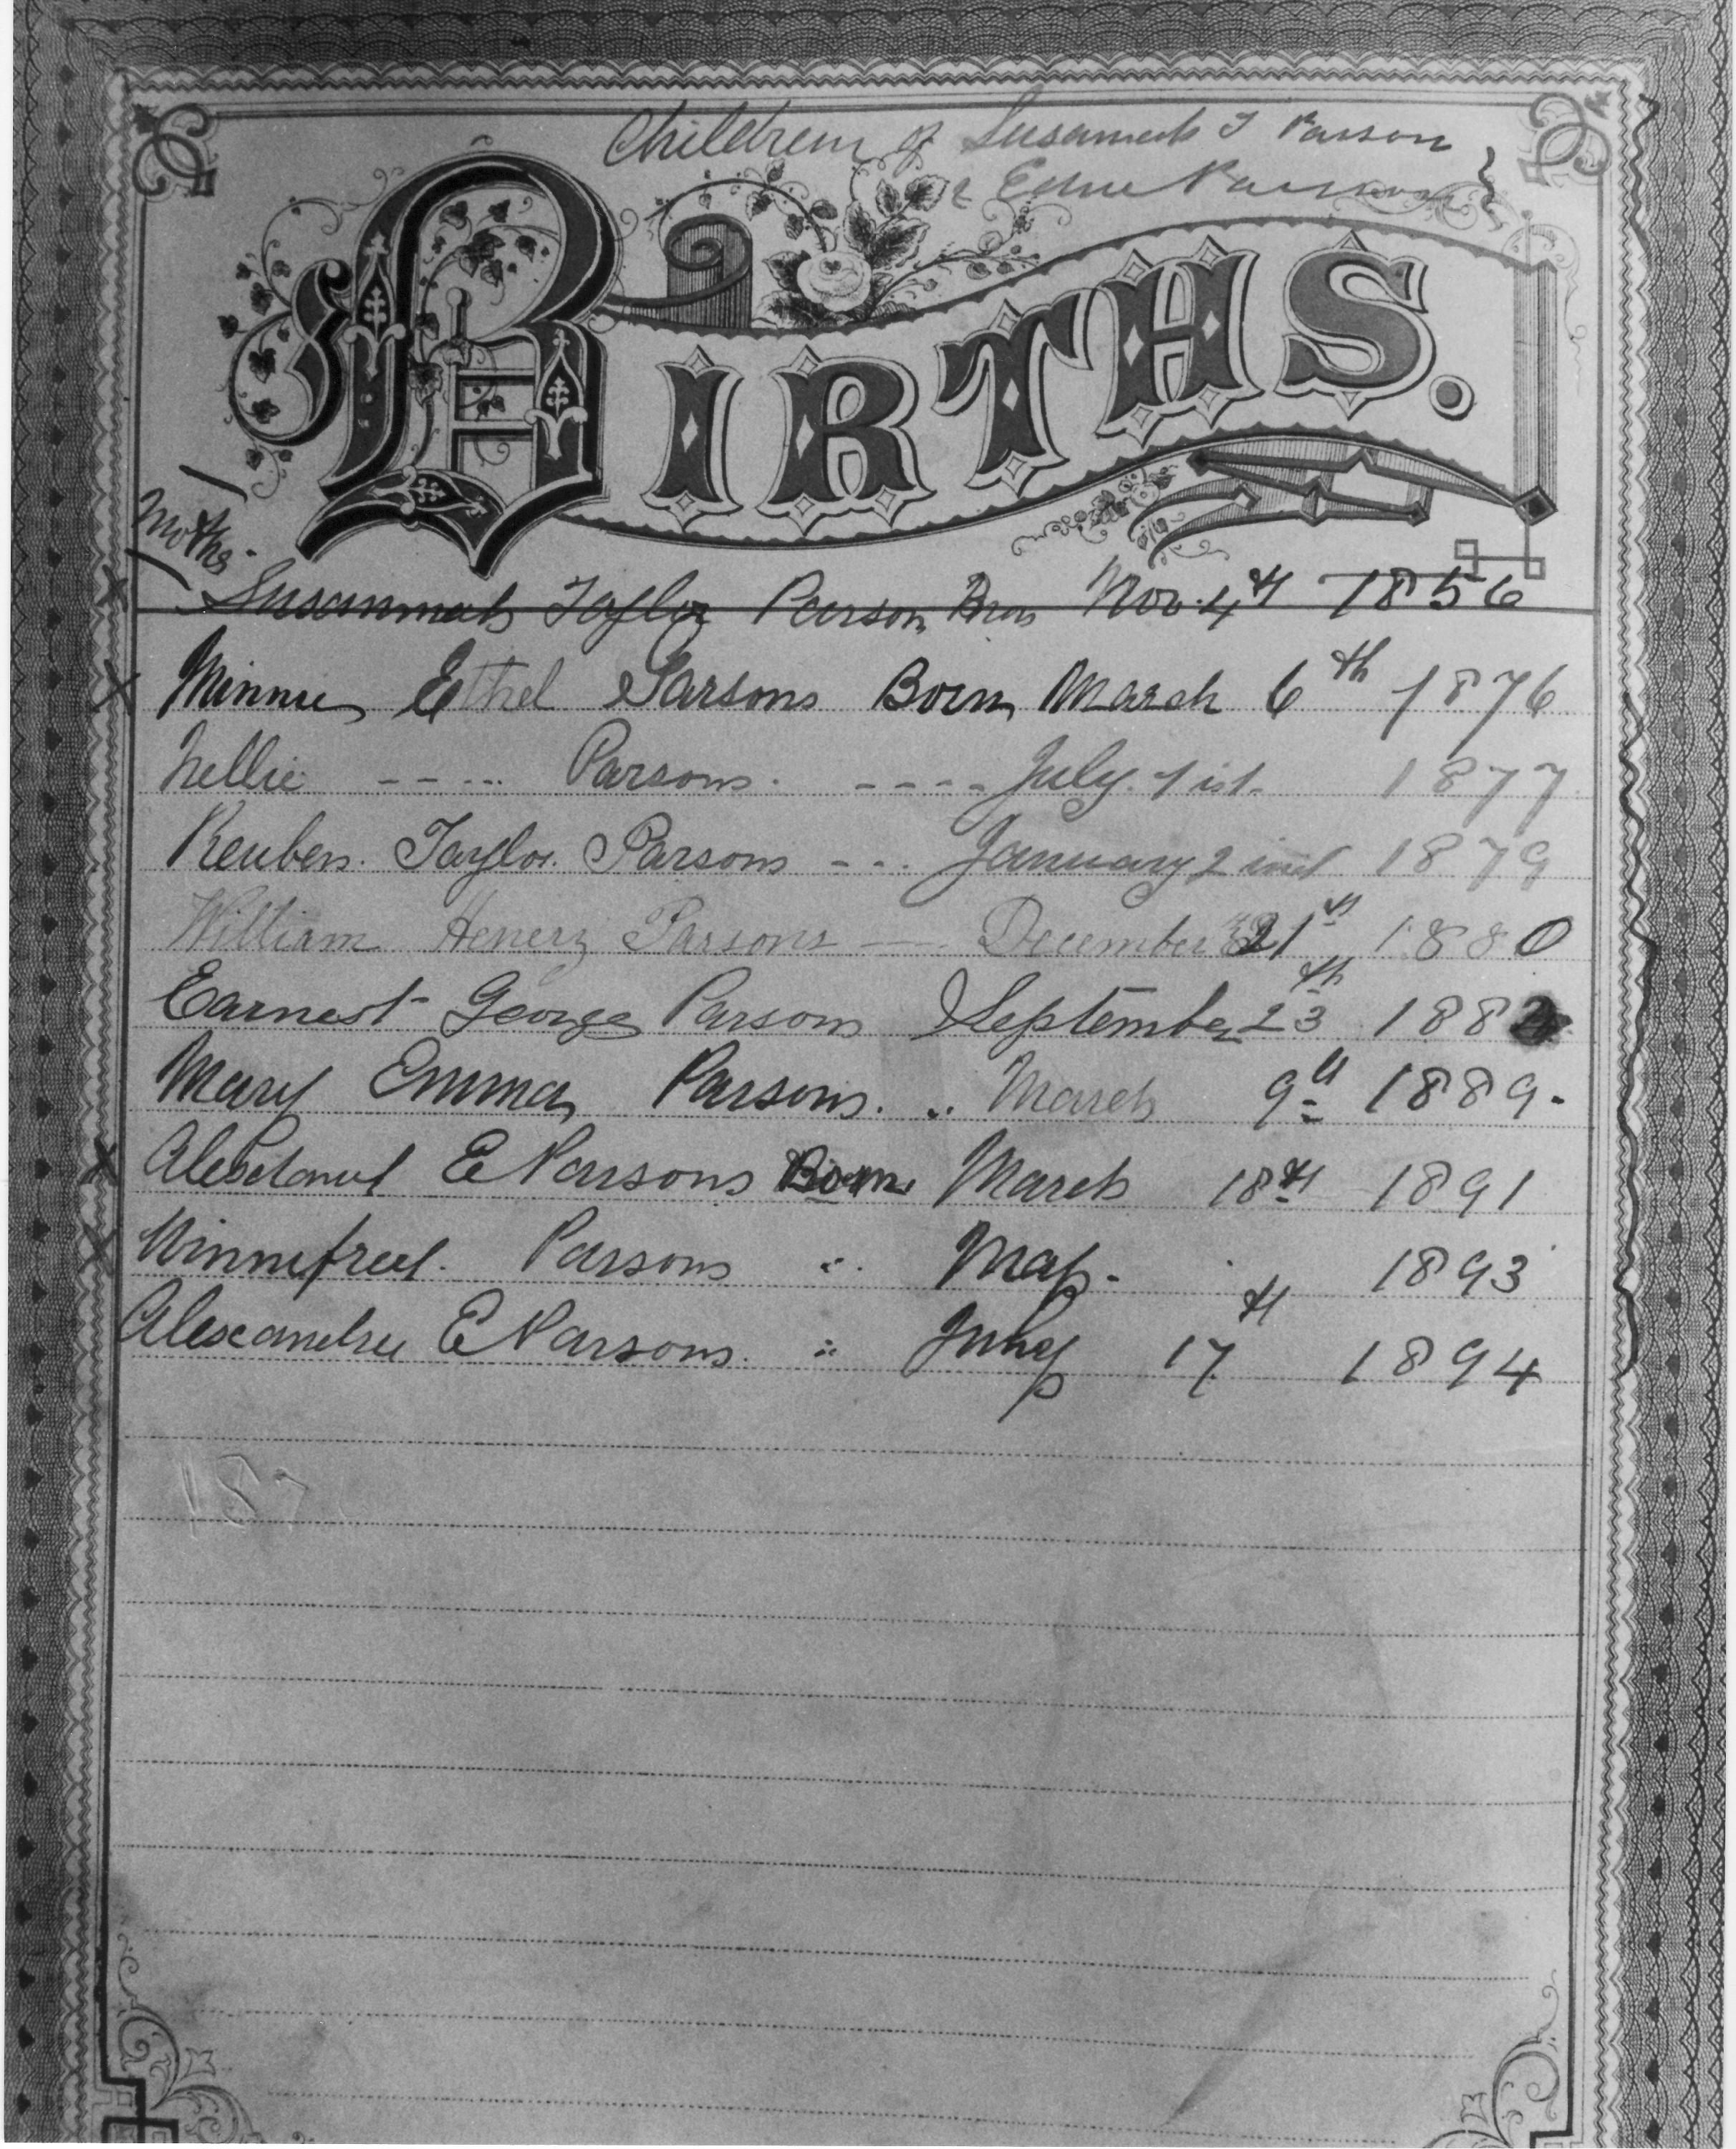 Children of Susannah T Parson
& Edne Parsons
BIRTHS.
Mother
Susannah Taylor Parson Born Nov. 4th 1856
Minnie Ethel Parsons Born March 6th 1876
Nellie ----- Parsons. ---- July. 1 ist. 1877
Reuben. Taylor. Parsons --- January 2 ind 1879
William Henery Parsons — December 21st 1880
Earnest George Parsons September 23th 1882
Mary Emma Parsons. .. March 9th 1889.
E Parsons Born March 18th 1891
Winnefred. Parsons .. May. 1893
Alexandra E Parsons. .. July 17th 1894
187